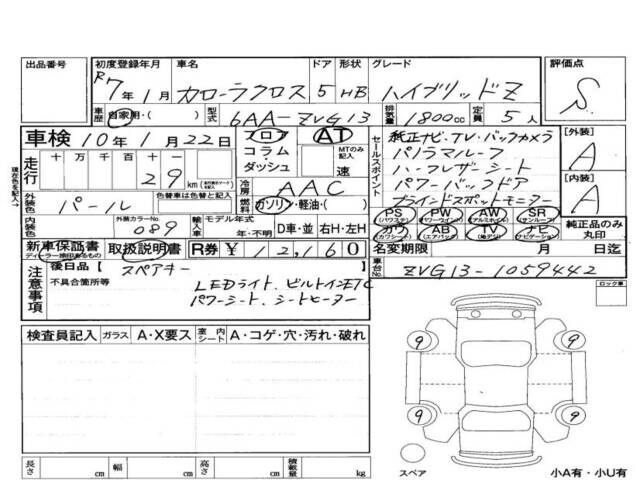 出品番号 初度登録年月 車名 ドア 形状 グレード 評価点
R7年1月 カローラクロス 5 HB ハイブリッドZ S
車歴 自家用・( ) 型式 6AA-ZVG13 排気量 1800cc 定員 5人
車検 10年1月22日 フロア AT セールスポイント 純正ナビ・TV・バックカメラ [外装]
走行 十万 千 百 十 一 コラム MTのみ記入 パノラマルーフ A
29 km ダッシュ 速 ハーフレザーシート
現在色を記入→ 外装色 パール 色替車は色替と記入 冷房 AAC パワーバックドア [内装]
燃料 ガソリン・軽油・( ) ブラインドスポットモニター A
内装色 外装カラーNo 089 輸入車 モデル年式 年・不明 D車・並 右H・左H PS (パワステ) PW (パワーウインド) AW (アルミホイル) SR (サンルーフ) 純正品のみ丸印
カワ (カワシート) AB (エアバッグ) TV ナビ (ナビゲーション)
新車保証書 ディーラー捺印あるもの 取扱説明書 R券 ¥12,160 名変期限 月 日迄
注意事項 後日品 [スペアキー 車台No ZVG13-1059442
不具合箇所等 LEDライト、ビルトインETC ロック車
パワーシート、シートヒーター
検査員記入 ガラス A・X要ス 室内シート A・コゲ・穴・汚れ・破れ
9 9
9 9
長さ cm 幅 cm 高さ cm 積載量 kg スペア 小A有・小U有